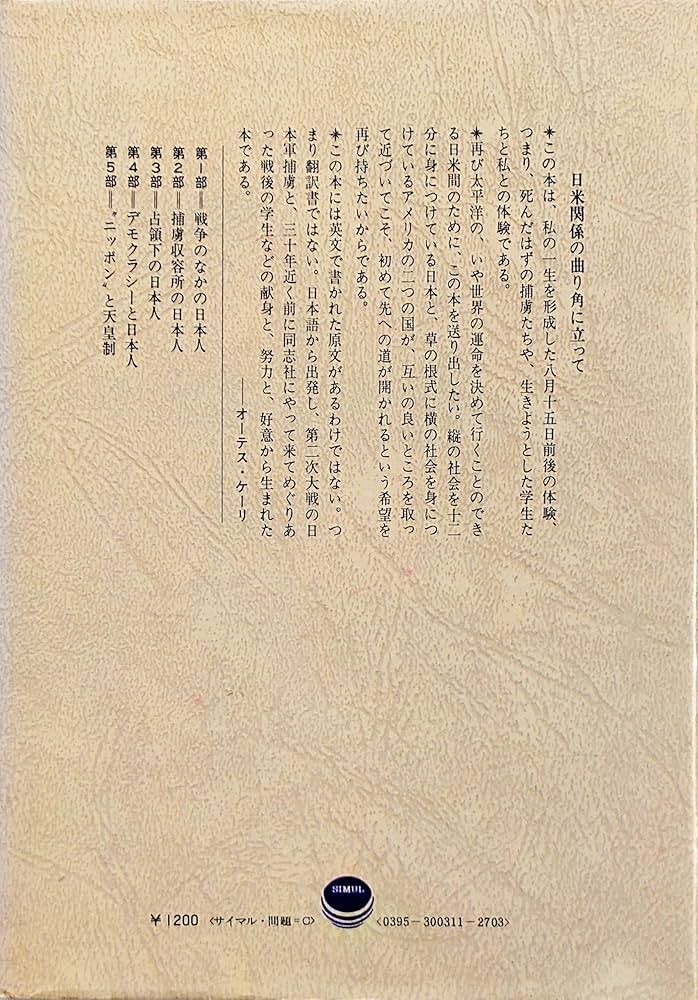 日米関係の曲り角に立って
＊この本は、私の一生を形成した八月十五日前後の体験、
つまり、死んだはずの捕虜たちや、生きようとした学生た
ちと私との体験である。
＊再び太平洋の、いや世界の運命を決めて行くことのでき
る日米間のために、この本を送り出したい。縦の社会を十二
分に身につけている日本と、草の根式に横の社会を身につ
けているアメリカの二つの国が、互いの良いところを取っ
て近づいてこそ、初めて先への道が開かれるという希望を
再び持ちたいからである。
＊この本には英文で書かれた原文があるわけではない。つ
まり翻訳書ではない。日本語から出発し、第二次大戦の日
本軍捕虜と、三十年近く前に同志社にやって来てめぐりあ
った戦後の学生などの献身と、努力と、好意から生まれた
本である。
――オーテス・ケーリ
第1部＝戦争のなかの日本人
第2部＝捕虜収容所の日本人
第3部＝占領下の日本人
第4部＝デモクラシーと日本人
第5部＝〝ニッポン〟と天皇制
SIMUL
￥1200〈サイマル・問題＝C〉
〈0395－300311－2703〉